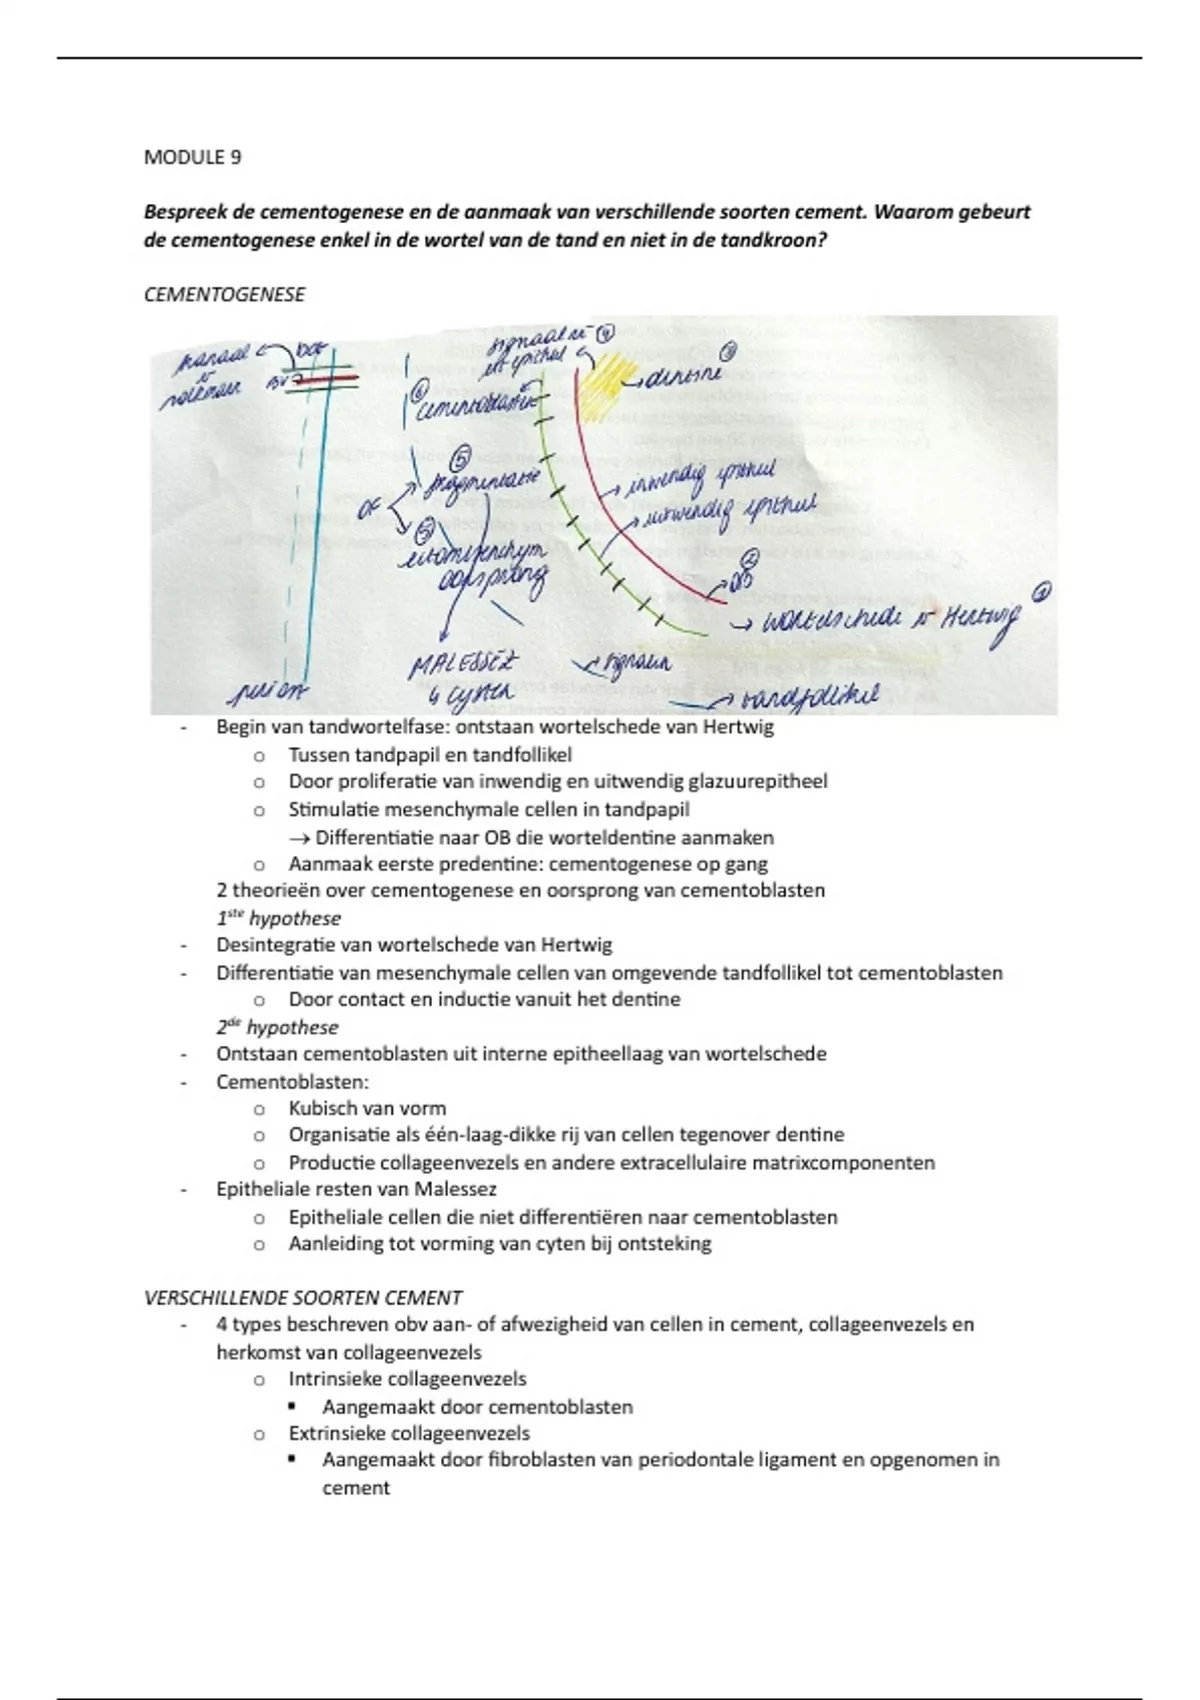 MODULE 9
Bespreek de cementogenese en de aanmaak van verschillende soorten cement. Waarom gebeurt
de cementogenese enkel in de wortel van de tand en niet in de tandkroon?
CEMENTOGENESE
kanaal
BV
signaal
④
uit epitheel
③
dentine
⑥
cementoblasten
⑤
fragmentatie
OF
⑤
ectomesenchym
oorsprong
inwendig epitheel
uitwendig epitheel
②
OB
①
wortelschede v Hertwig
MALESSEZ
↳ cysten
signaal
tandfollikel
- Begin van tandwortelfase: ontstaan wortelschede van Hertwig
o Tussen tandpapil en tandfollikel
o Door proliferatie van inwendig en uitwendig glazuurepitheel
o Stimulatie mesenchymale cellen in tandpapil
→ Differentiatie naar OB die worteldentine aanmaken
o Aanmaak eerste predentine: cementogenese op gang
2 theorieën over cementogenese en oorsprong van cementoblasten
1ste hypothese
- Desintegratie van wortelschede van Hertwig
- Differentiatie van mesenchymale cellen van omgevende tandfollikel tot cementoblasten
o Door contact en inductie vanuit het dentine
2de hypothese
- Ontstaan cementoblasten uit interne epitheellaag van wortelschede
- Cementoblasten:
o Kubisch van vorm
o Organisatie als één-laag-dikke rij van cellen tegenover dentine
o Productie collageenvezels en andere extracellulaire matrixcomponenten
- Epitheliale resten van Malessez
o Epitheliale cellen die niet differentiëren naar cementoblasten
o Aanleiding tot vorming van cyten bij ontsteking
VERSCHILLENDE SOORTEN CEMENT
- 4 types beschreven obv aan- of afwezigheid van cellen in cement, collageenvezels en
herkomst van collageenvezels
o Intrinsieke collageenvezels
▪ Aangemaakt door cementoblasten
o Extrinsieke collageenvezels
▪ Aangemaakt door fibroblasten van periodontale ligament en opgenomen in
cement